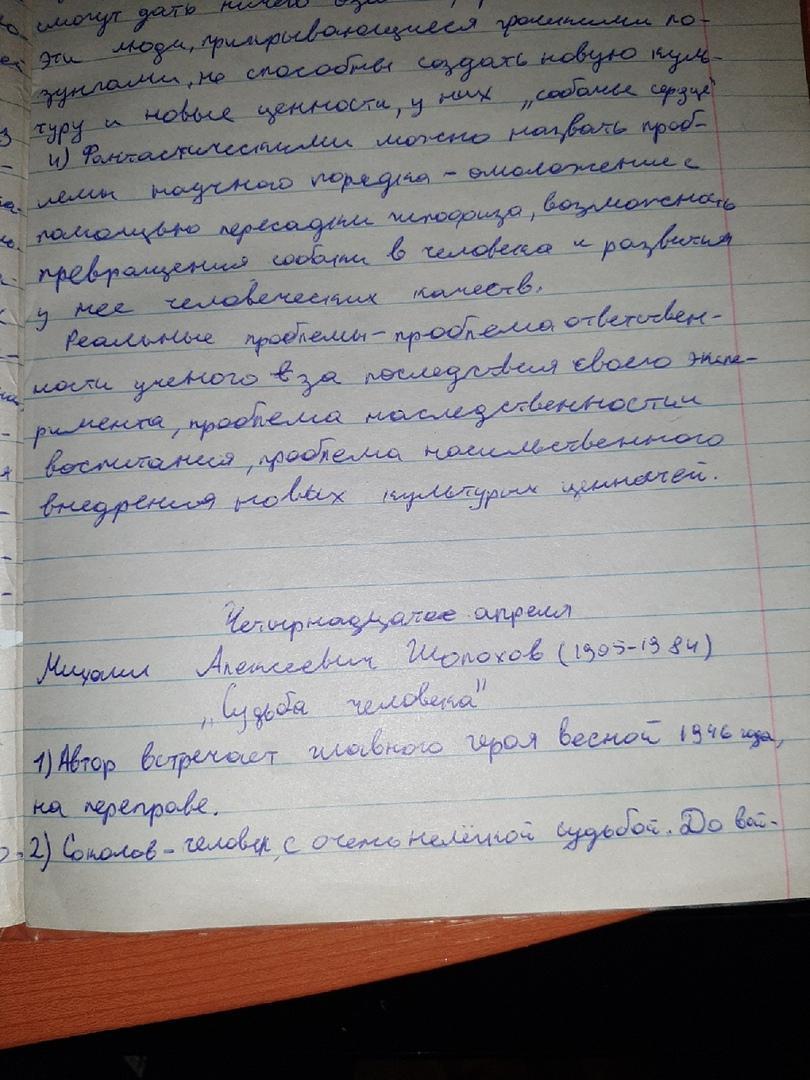 смогут дать ничего
Эти люди, прикрывающиеся громкими ло-
зунгами, не способны создать новую куль-
туру и новые ценности, у них „собачье сердце"
4) Фантастическими можно назвать проб-
лемы научного порядка - омоложение с
помощью пересадки гипофиза, возможность
превращения собаки в человека и развития
у нее человеческих качеств.
Реальные проблемы - проблема ответствен-
ности ученого за последствия своего экспе-
римента, проблема наследственности и
воспитания, проблема насильственного
внедрения новых культурных ценностей.
Четырнадцатое апреля
Михаил Алексеевич Шолохов (1905-1984)
„Судьба человека"
1) Автор встречает главного героя весной 1946 года,
на переправе.
2) Соколов - человек, с очень нелёгкой судьбой. До вой-